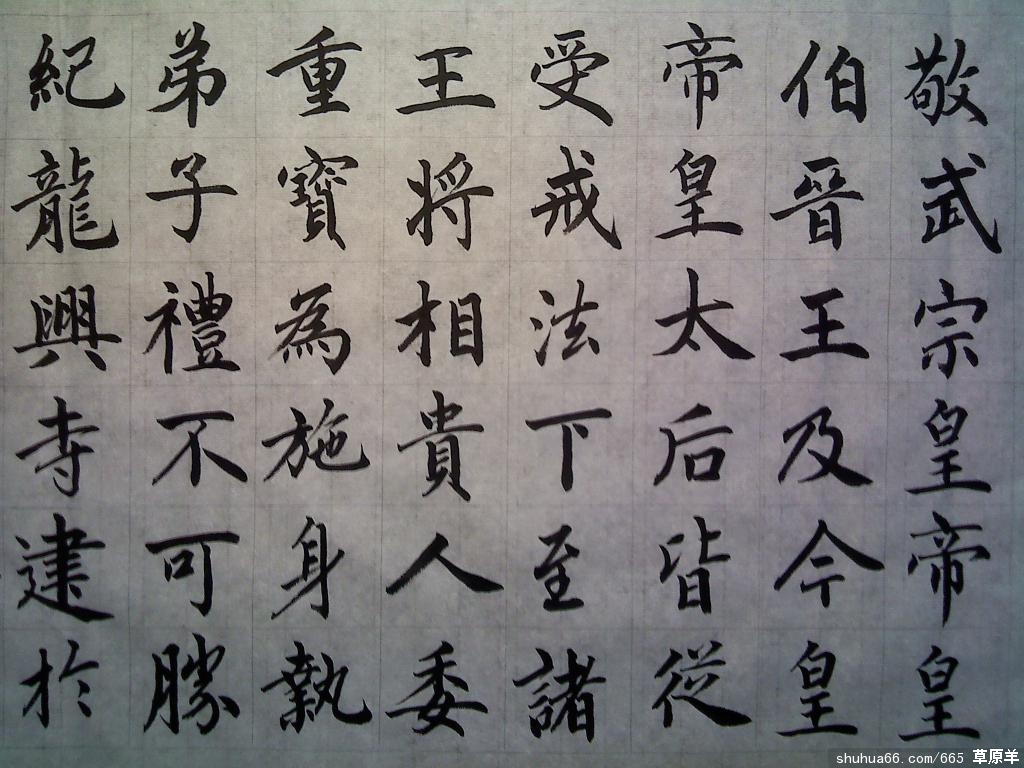 敬武宗皇帝皇
伯晉王及今皇
帝皇太后皆從
受戒法下至諸
王將相貴人委
重寶為施身執
弟子禮不可勝
紀龍興寺建於
shuhua66.com/665 草原羊